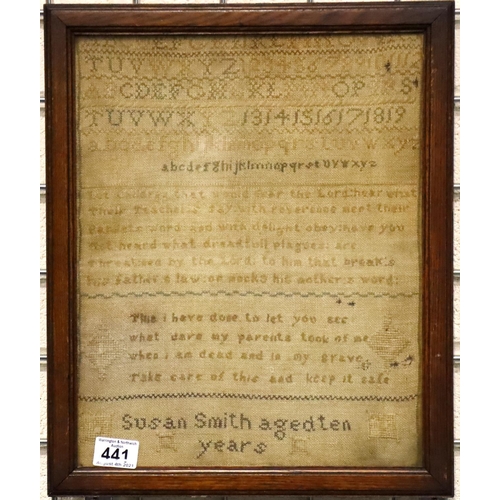 TUVWXYZ
ABCDEFGH KL OP S
TUVWX YZ 13141516171819
abcdefghijklmnopqrstuvwxyz
abcdefghijklmnopqrstuvwxyz
Let that would fear the Lord hear what
Their Teachers Say with reverence meet their
Parents word and with delight obey have you
Not heard what dreadfull plagues are
Threatned by the Lord to him that breaks
his fathers law or mocks his mothers word
This i have done to let you see
what care my parents took of me
when i am dead and in my grave
Take care of this and keep it safe
Susan Smith aged ten
years
441